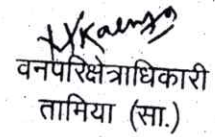 वनपरिक्षेत्राधिकारी
तामिया (सा.)